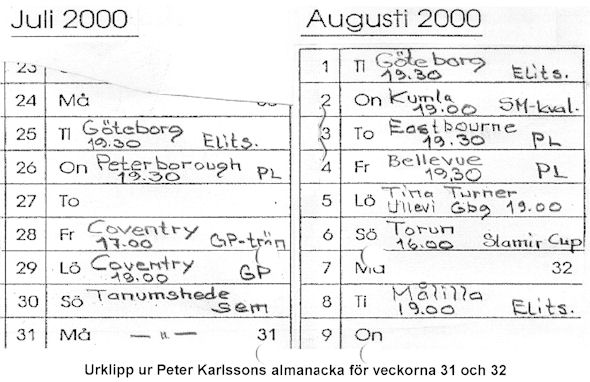 Juli 2000
23
24 Må
25 Ti Göteborg
19.30 Elits.
26 On Peterborough
19.30 PL
27 To
28 Fr Coventry
17.00 GP-trän
29 Lö Coventry
19.00 GP
30 Sö Tanumshede
Sem
31 Må — " — 31
Augusti 2000
1 Ti Göteborg
19.30 Elits.
2 On Kumla
19.00 SM-kval.
3 To Eastbourne
19.30 PL
4 Fr Bellevue
19.30 PL
5 Lö Tina Turner
Ullevi Gbg 19.00
6 Sö Torun
16.00 Slamir Cup
7 Må 32
8 Ti Målilla
19.00 Elits.
9 On
Urklipp ur Peter Karlssons almanacka för veckorna 31 och 32